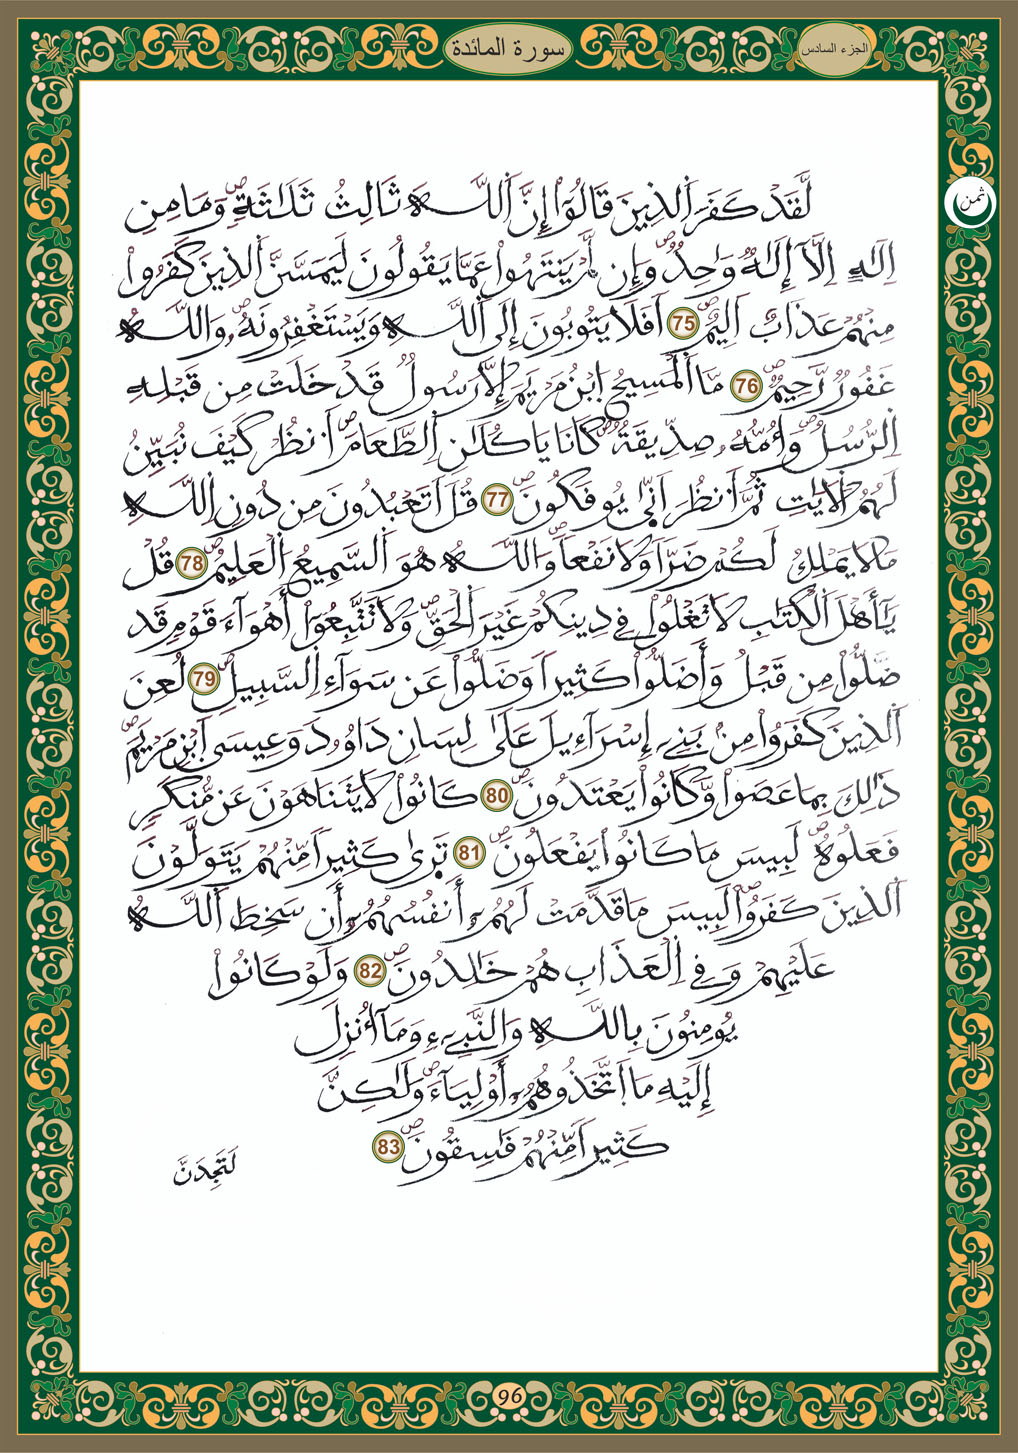 سورة المائدة
الجزء السادس
ثمن
لَّقَدْ كَفَرَ اَ۬لذِينَ قَالُوٓاْ إِنَّ اَ۬للَّهَ ثَالِثُ ثَلَٰثَةٖۖ وَمَا مِنِ
اِلَٰهٍ اِلَّآ إِلَٰهٞ وَٰحِدٞۖ وَإِن لَّمْ يَنتَهُواْ عَمَّا يَقُولُونَ لَيَمَسَّنَّ اَ۬لذِينَ كَفَرُواْ
مِنْهُمْ عَذَابٌ اَلِيمٌۖ 75 اَفَلَا يَتُوبُونَ إِلَى اَ۬للَّهِ وَيَسْتَغْفِرُونَهُۥۖ وَاللَّهُ
غَفُورٞ رَّحِيمٞۖ 76 مَّا اَ۬لْمَسِيحُ اُ۪بْنُ مَرْيَمَ إِلَّا رَسُولٞ قَدْ خَلَتْ مِن قَبْلِهِ
اِ۬لرُّسُلُۖ وَأُمُّهُۥ صِدِّيقَةٞۖ كَانَا يَاكُلَٰنِ اِ۬لطَّعَامَۖ اَ۟نظُرْ كَيْفَ نُبَيِّنُ
لَهُمُ اُ۬لَايَٰتِ ثُمَّ اَ۟نظُرَ اَنّ۪يٰ يُوفَكُونَۖ 77 قُلَ اَتَعْبُدُونَ مِن دُونِ اِ۬للَّهِ
مَا لَا يَمْلِكُ لَكُمْ ضَرّاٗ وَلَا نَفْعاٗۖ وَاللَّهُ هُوَ اَ۬لسَّمِيعُ اُ۬لْعَلِيمُۖ 78 قُلْ
يَٰٓأَهْلَ اَ۬لْكِتَٰبِ لَا تَغْلُواْ فِي دِينِكُمْ غَيْرَ اَ۬لْحَقِّۖ وَلَا تَتَّبِعُوٓاْ أَهْوَآءَ قَوْمٖ قَد
ضَّلُّواْ مِن قَبْلُ وَأَضَلُّواْ كَثِيراٗ وَضَلُّواْ عَن سَوَآءِ اِ۬لسَّبِيلِۖ 79 لُعِنَ
اَ۬لذِينَ كَفَرُواْ مِنۢ بَنِےٓ إِسْرَآءِيلَ عَلَىٰ لِسَانِ دَاوُۥدَ وَعِيسَى اَ۪بْنِ مَرْيَمَۖ
ذَٰلِكَ بِمَا عَصَواْ وَّكَانُواْ يَعْتَدُونَۖ 80 كَانُواْ لَا يَتَنَاهَوْنَ عَن مُّنكَرٖ
فَعَلُوهُۖ لَبِيسَ مَا كَانُواْ يَفْعَلُونَۖ 81 تَر۪يٰ كَثِيراٗ مِّنْهُمْ يَتَوَلَّوْنَ
اَ۬لذِينَ كَفَرُواْۖ لَبِيسَ مَا قَدَّمَتْ لَهُمُۥٓ أَنفُسُهُمُۥٓ أَن سَخِطَ اَ۬للَّهُ
عَلَيْهِمْ وَفِے اِ۬لْعَذَابِ هُمْ خَٰلِدُونَۖ 82 وَلَوْ كَانُواْ
يُومِنُونَ بِاللَّهِ وَالنَّبِےٓءِ وَمَآ أُنزِلَ
إِلَيْهِ مَا اَ۪تَّخَذُوهُمُۥٓ أَوْلِيَآءَۖ وَلَٰكِنَّ
كَثِيراٗ مِّنْهُمْ فَٰسِقُونَۖ 83
لَتَجِدَنَّ
96